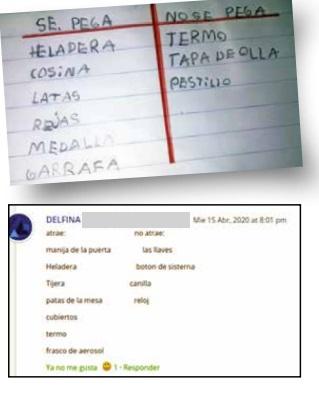 SE. PEGA NO SE PEGA
HELADERA TERMO
COSINA TAPA DE OLLA
LATAS PESTILLO
REJAS
MEDALLA
GARRAFA
DELFINA Mie 15 Abr, 2020 at 8:01 pm
atrae: no atrae:
manija de la puerta las llaves
Heladera boton de sisterna
Tijera canilla
patas de la mesa reloj
cubiertos
termo
frasco de aerosol
Ya no me gusta 1 · Responder